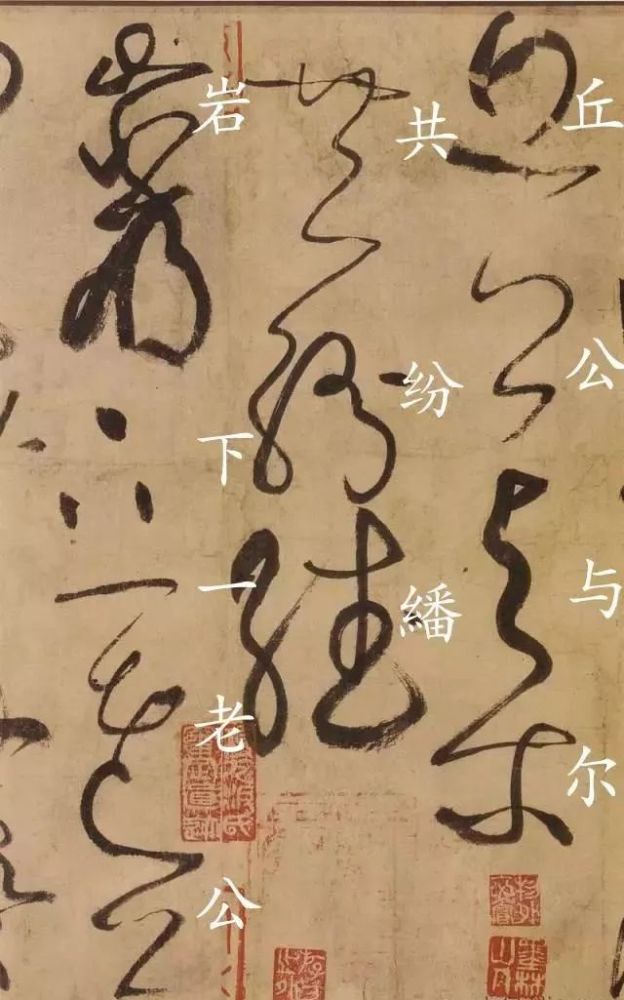 丘公与尔
共纷繙
岩下一老公